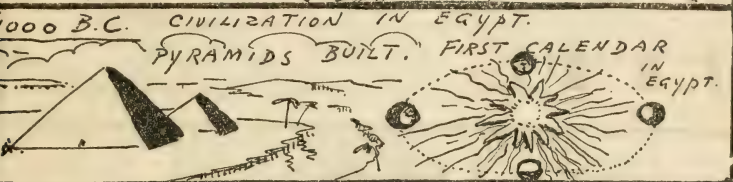 1000 B.C. CIVILIZATION IN EGYPT.
PYRAMIDS BUILT. FIRST CALENDAR
IN
EGYPT.